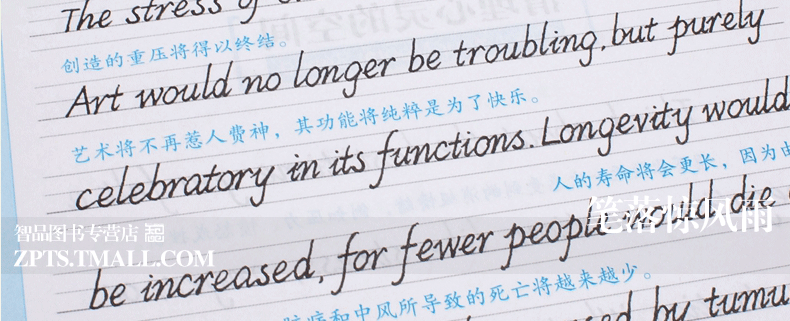 The stress of
创造的重压将得以终结。
Art would no longer be troubling, but purely
艺术将不再惹人费神，其功能将纯粹是为了快乐。
celebratory in its functions. Longevity would
人的寿命将会更长，因为由
be increased, for fewer people would die
和中风所导致的死亡将越来越少。
by tumu
笔落惊风雨
智品图书专营店
ZPTS.TMALL.COM